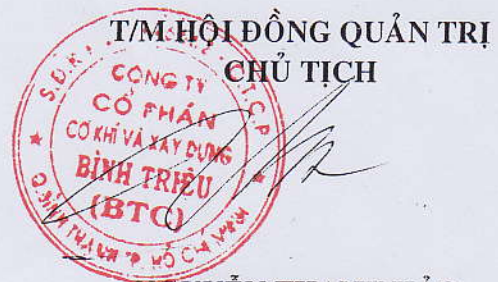 T/M HỘI ĐỒNG QUẢN TRỊ
CHỦ TỊCH
CÔNG TY
CỔ PHẦN
CƠ KHÍ VÀ XÂY DỰNG
BÌNH TRIỆU
(BTC)
Q.BÌNH THẠNH TP. HỒ CHÍ MINH